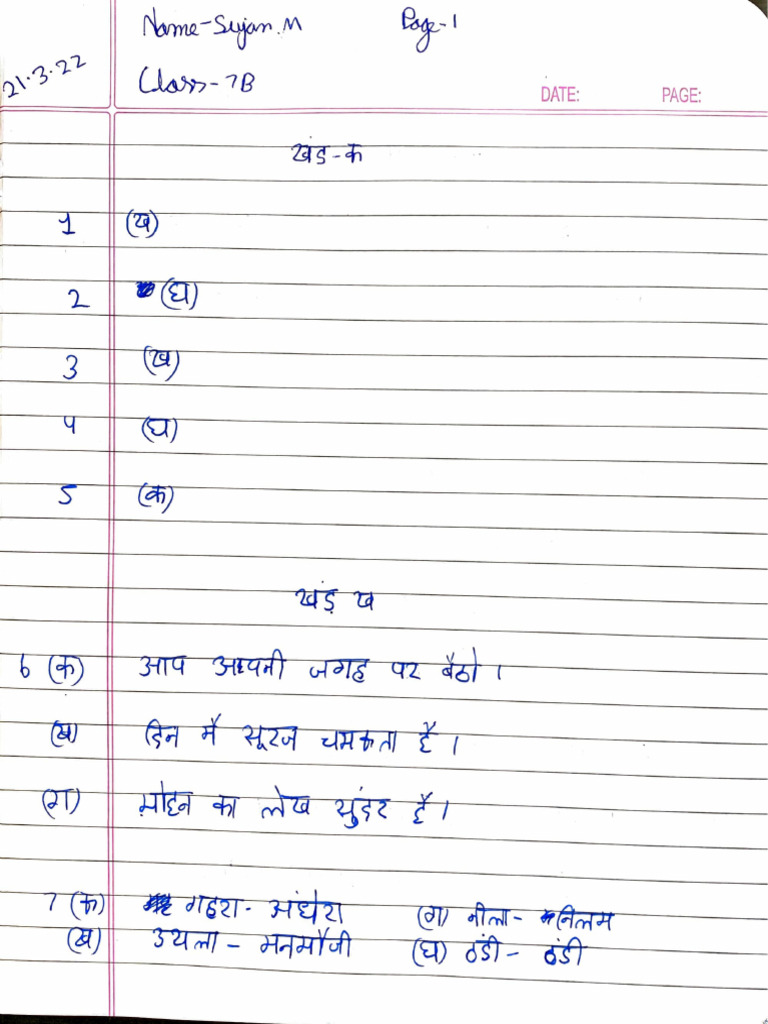 Name-Sujan.M Page-1
21.3.22
Class-7B
DATE: PAGE:
खंड-क
1 (ख)
2 (घ)
3 (ख)
4 (घ)
5 (क)
खंड़ ख
6 (क) आप आपनी जगह पर बैठो।
(ख) दिन मै सूरज चमकता है।
(ग) मोहन का लेख सुंदर है।
7 (क) गहरा- अंधेरा (ग) नीला- निलम
(ख) उथला - मनमौजी (घ) ठंडी- ठंडी